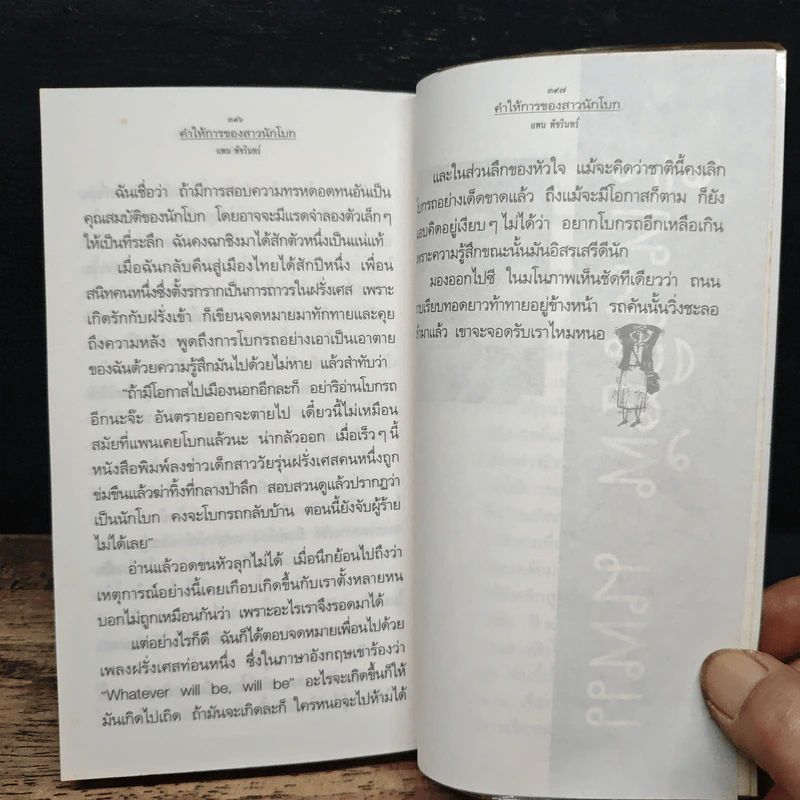 ๓๙๖
คำให้การของสาวนักโบก
แพน พัชรินทร์
ฉันเชื่อว่า ถ้ามีการสอบความทรหดอดทนอันเป็น
คุณสมบัติของนักโบก โดยอาจจะมีแรดจำลองตัวเล็กๆ
ให้เป็นที่ระลึก ฉันคงฉกชิงมาได้สักตัวหนึ่งเป็นแน่แท้
เมื่อฉันกลับคืนสู่เมืองไทยได้สักปีหนึ่ง เพื่อน
สนิทคนหนึ่งซึ่งตั้งรกรากเป็นการถาวรในฝรั่งเศส เพราะ
เกิดรักกับฝรั่งเข้า ก็เขียนจดหมายมาทักทายและคุย
ถึงความหลัง พูดถึงการโบกรถอย่างเอาเป็นเอาตาย
ของฉันด้วยความรู้สึกมันไปด้วยไม่หาย แล้วสำทับว่า
“ถ้ามีโอกาสไปเมืองนอกอีกละก็ อย่าริอ่านโบกรถ
อีกนะจ๊ะ อันตรายออกจะตายไป เดี๋ยวนี้ไม่เหมือน
สมัยที่แพนเคยโบกแล้วนะ น่ากลัวออก เมื่อเร็วๆ นี้
หนังสือพิมพ์ลงข่าวเด็กสาววัยรุ่นฝรั่งเศสคนหนึ่งถูก
ข่มขืนแล้วฆ่าทิ้งที่กลางป่าลึก สอบสวนดูแล้วปรากฏว่า
เป็นนักโบก คงจะโบกรถกลับบ้าน ตอนนี้ยังจับผู้ร้าย
ไม่ได้เลย”
อ่านแล้วอดขนหัวลุกไม่ได้ เมื่อนึกย้อนไปถึงว่า
เหตุการณ์อย่างนี้เคยเกือบเกิดขึ้นกับเราตั้งหลายหน
บอกไม่ถูกเหมือนกันว่า เพราะอะไรเราจึงรอดมาได้
แต่อย่างไรก็ดี ฉันก็ได้ตอบจดหมายเพื่อนไปด้วย
เพลงฝรั่งเศสท่อนหนึ่ง ซึ่งในภาษาอังกฤษเขาร้องว่า
“Whatever will be, will be” อะไรจะเกิดขึ้นก็ให้
มันเกิดไปเถิด ถ้ามันจะเกิดละก็ ใครหนอจะไปห้ามได้
๓๙๗
คำให้การของสาวนักโบก
แพน พัชรินทร์
และในส่วนลึกของหัวใจ แม้จะคิดว่าชาตินี้คงเลิก
โบกรถอย่างเด็ดขาดแล้ว ถึงแม้จะมีโอกาสก็ตาม ก็ยัง
แอบคิดอยู่เงียบๆ ไม่ได้ว่า อยากโบกรถอีกเหลือเกิน
เพราะความรู้สึกขณะนั้นมันอิสรเสรีดีนัก
มองออกไปซี ในมโนภาพเห็นชัดทีเดียวว่า ถนน
ราบเรียบทอดยาวท้าทายอยู่ข้างหน้า รถคันนั้นวิ่งชะลอ
ช้ามาแล้ว เขาจะจอดรับเราไหมหนอ